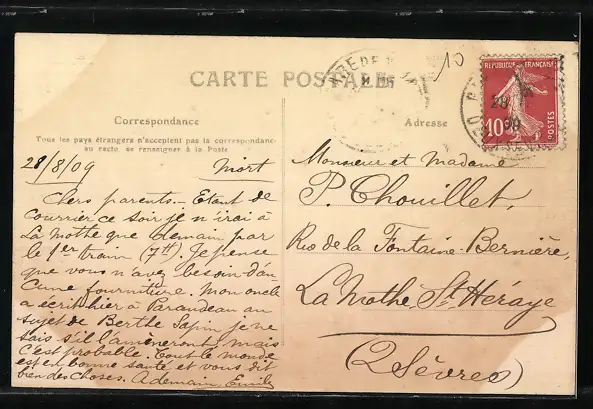 CARTE POSTALE
Correspondance
Tous les pays étrangers n'acceptent pas la correspondance
au recto, se renseigner à la Poste
28/8/09 Niort
Chers parents. - Etant de
courrier ce soir je n'irai à
La Mothe que demain par
le 1er train (7H). Je pense
que vous n'avez besoin d'au
cune fourniture. Mon oncle
a écrit hier à Parandeau au
sujet de Berthe Sapin je ne
sais s'il l'amèneront, mais
c'est probable. Tout le monde
est en bonne santé et vous dit
bien des choses. A demain, Emile
10
REPUBLIQUE FRANÇAISE
10
POSTES
28
Adresse
Monsieur et Madame
P. Chouillet.
Rue de la Fontaine-Bernière,
La Mothe St Héraye
(2 Sèvres)